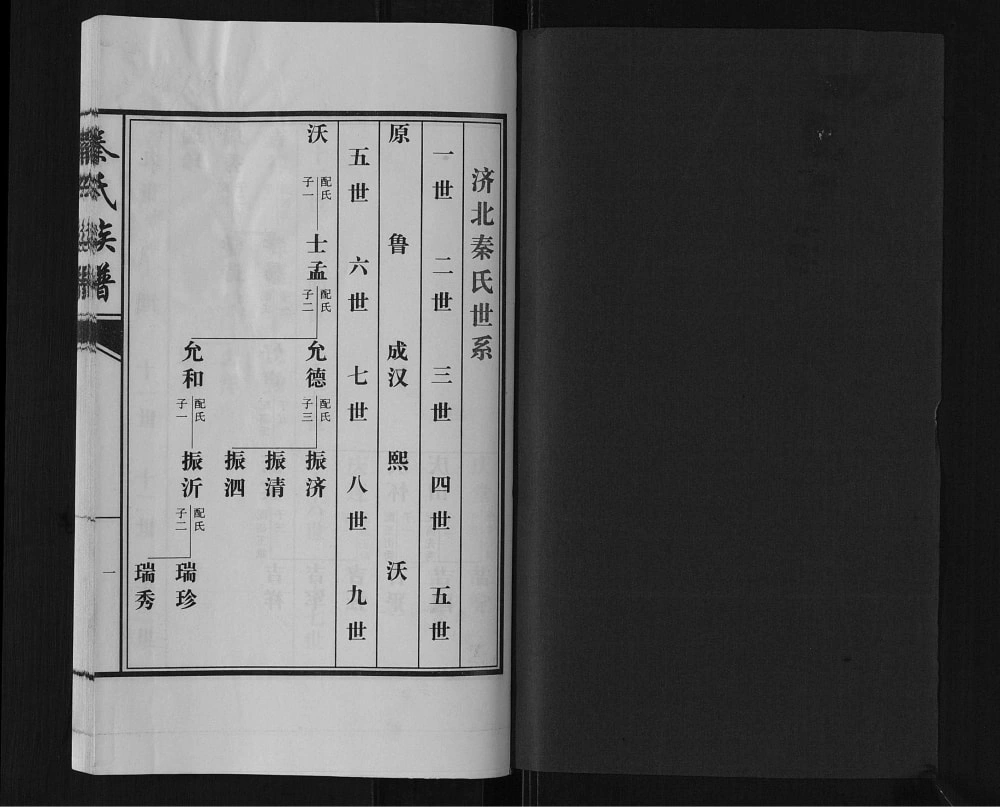 济北秦氏世系
一世 二世 三世 四世 五世
原 鲁 成汉 熙 沃
五世 六世 七世 八世 九世
沃 配氏 子一 士孟 配氏 子二 允德 配氏 子三 振济
振清
振泗
允和 配氏 子一 振沂 配氏 子二 瑞珍
瑞秀
秦氏族谱
一